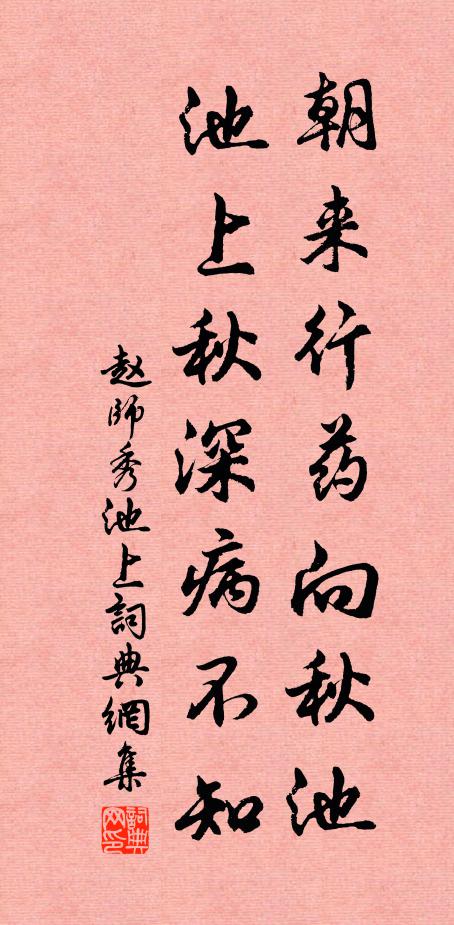 朝来行药向秋池
池上秋深病不知
赵师秀池上詞典網集
詞典網印